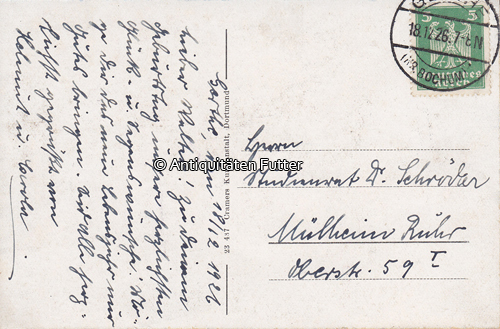 Gerthe, den 18/2 1926
Lieber Walter! Zu Deinem
Geburtstag unsere herzlichsten
Glück- u. Segenswünsche. Mö-
ge Dir das neue Lebensjahr nur
Gutes bringen. Seid alle herz-
lichst gegrüßt von
Helmut u.
23 437 Cramers Kunstanstalt, Dortmund
© Antiquitäten Futter
5
18.12.26. 7-8N
(KR. BOCHUM)
Herrn
Studienrat Dr. Schröder
Mülheim Ruhr
Oberstr. 59 I